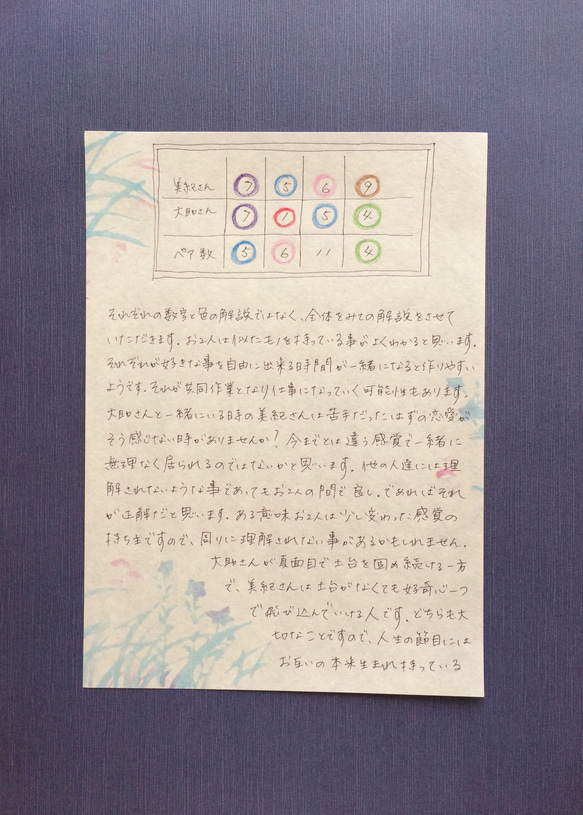 美紀さん 7 5 6 9
大助さん 7 1 5 4
ペア数 5 6 11 4
それぞれの数字と色の解説ではなく、全体をみての解説をさせて
いただきます。お2人は似たモノを持っている事がよくわかると思います。
それぞれが好きな事を自由に出来る時間が一緒になると作りやすい
ようです。それが共同作業となり仕事になっていく可能性もあります。
大助さんと一緒にいる時の美紀さんは苦手だったはずの恋愛が
そう感じない時がありませんか？今までとは違う感覚で一緒に
無理なく居られるのではないかと思います。他の人達には理
解されないような事であってもお2人の間で良し。であればそれ
が正解だと思います。ある意味お2人は少し変わった感覚の
持ち主ですので、周りに理解されない事があるかもしれません。
大助さんが真面目で土台を固め続ける一方
で、美紀さんは土台がなくても好奇心一つ
で飛び込んでいける人です。どちらも大
切なことですので、人生の節目には
お互いの本来生まれ持っている